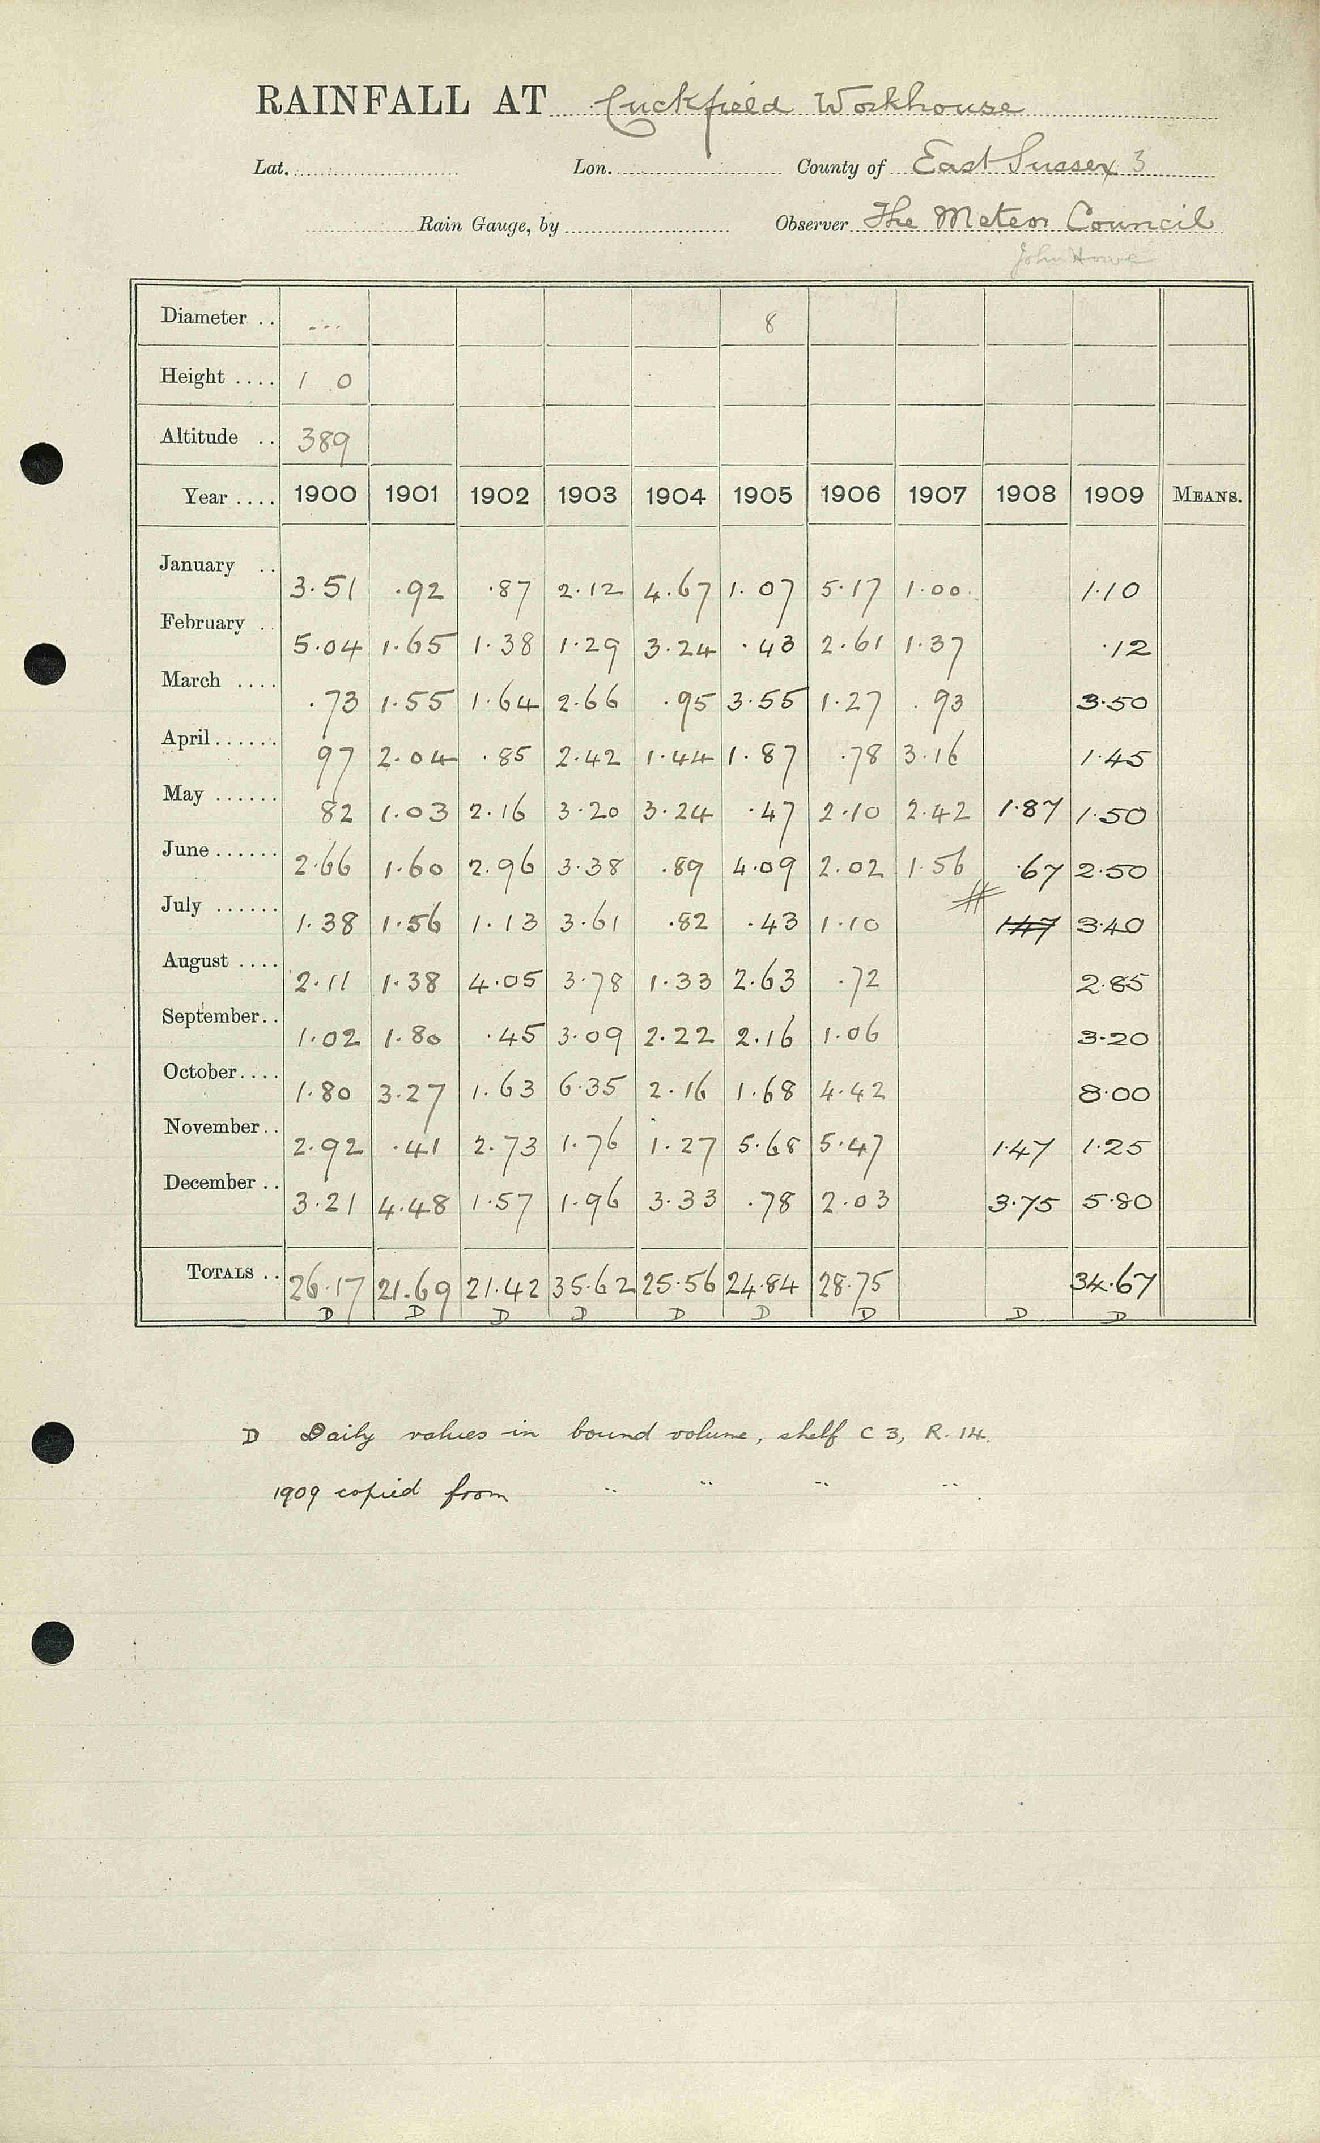 RAINFALL AT Cuckfield Workhouse
Lat. Lon. County of East Sussex 3
Rain Gauge, by Observer The Meteor Council
John Howe
Diameter .. ... 8
Height .... 1 0
Altitude .. 389
Year .... 1900 1901 1902 1903 1904 1905 1906 1907 1908 1909 MEANS.
January .. 3.51 .92 .87 2.12 4.67 1.07 5.17 1.00 1.10
February .. 5.04 1.65 1.38 1.29 3.24 .43 2.61 1.37 .12
March .... .73 1.55 1.64 2.66 .95 3.55 1.27 .93 3.50
April...... 97 2.04 .85 2.42 1.44 1.87 .78 3.16 1.45
May ...... 82 1.03 2.16 3.20 3.24 .47 2.10 2.42 1.87 1.50
June...... 2.66 1.60 2.96 3.38 .89 4.09 2.02 1.56 .67 2.50
July ...... 1.38 1.56 1.13 3.61 .82 .43 1.10 # 1.47 3.40
August .... 2.11 1.38 4.05 3.78 1.33 2.63 .72 2.85
September.. 1.02 1.80 .45 3.09 2.22 2.16 1.06 3.20
October.... 1.80 3.27 1.63 6.35 2.16 1.68 4.42 8.00
November.. 2.92 .41 2.73 1.76 1.27 5.68 5.47 1.47 1.25
December .. 3.21 4.48 1.57 1.96 3.33 .78 2.03 3.75 5.80
TOTALS .. 26.17 21.69 21.42 35.62 25.56 24.84 28.75 34.67
D D D D D D D D D
D Daily values in bound volume, shelf C 3, R. 14.
1909 copied from " " " "